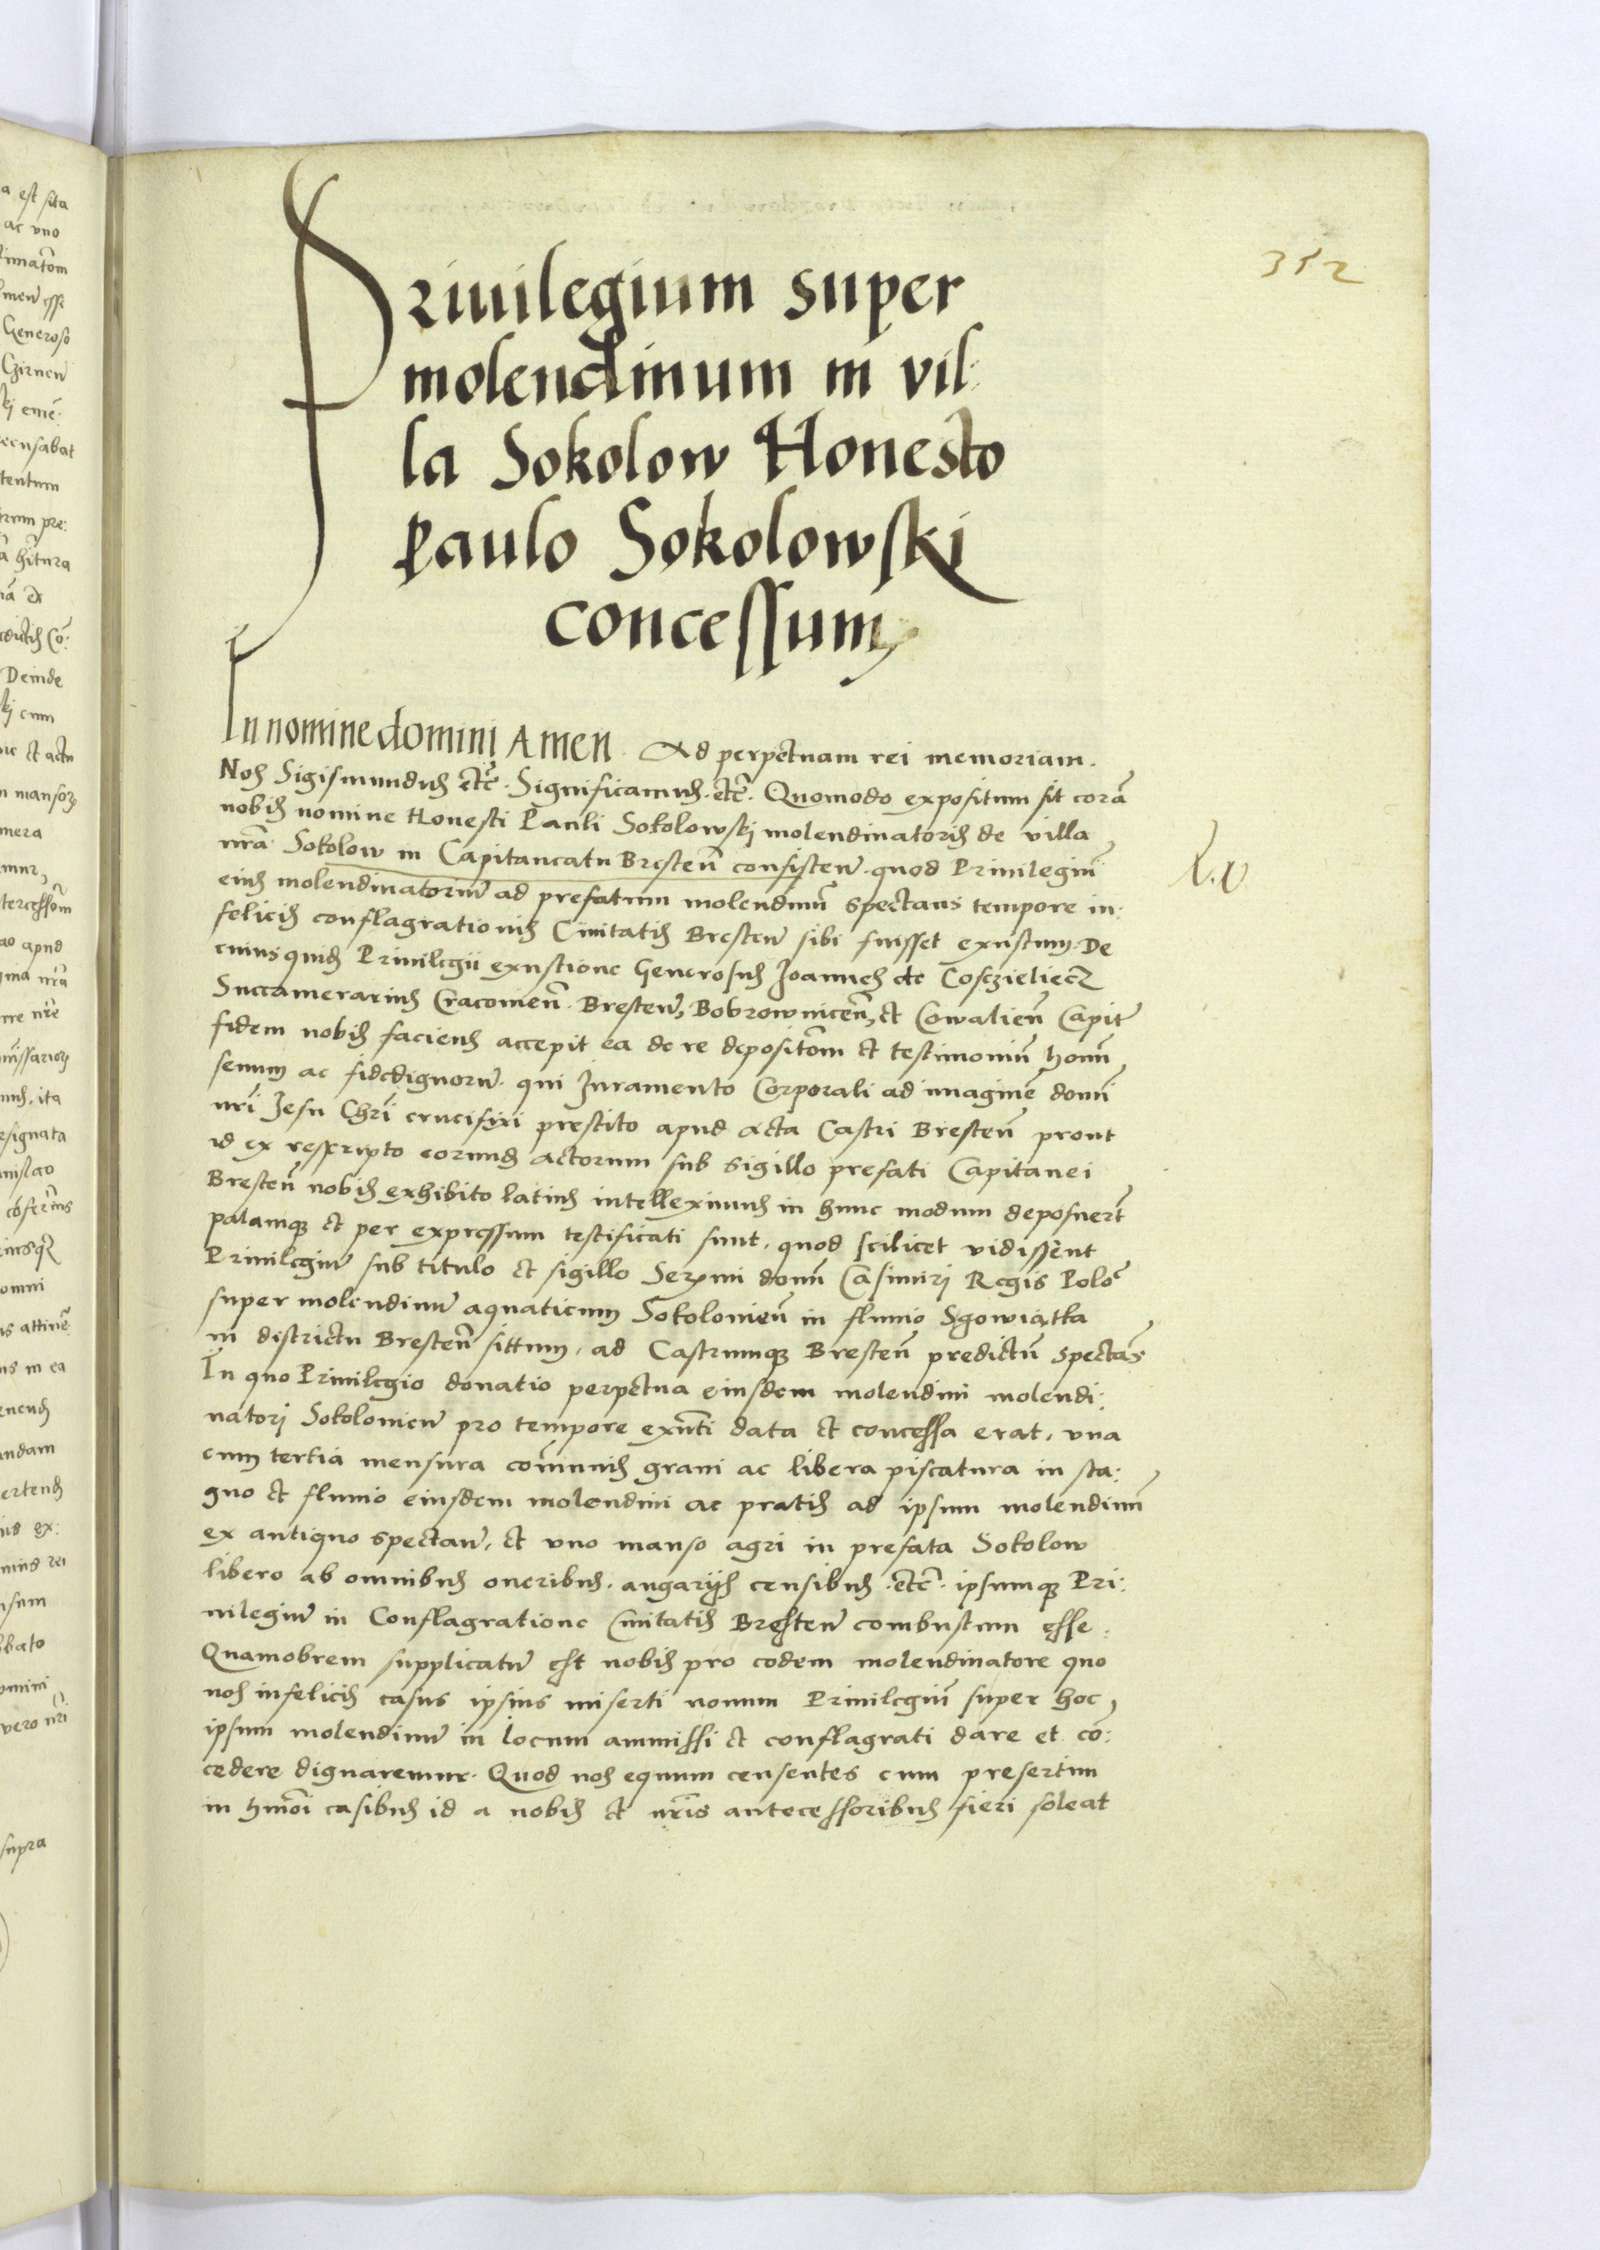 352
Priuilegium super
molendinum in vil:
la Sokolow Honesto
Paulo Sokolowskj
concessum
In nomine domini Amen. Ad perpetuam rei memoriam.
Nos Sigismundus etc̃. Significamus. etc̃. Quomodo expositum sit corã
nobis nomine Honesti Pauli Sokolowskj molendinatoris de villa
nr̃a Sokolow in Capitaneatu Bresteñ consisteñ. quod Priuilegiũ
eius molendinatoriũ ad prefatum molendinũ spectans tempore in:
felicis conflagrationis Ciuitatis Bresteñ sibi fuisset exustum. De
cuius quidẽ Priuilegii exustione Generosus Joannes de Coszcieliecz
Succamerarius Cracouieñ. Bresteñ, Bobrowniceñ, et Cowalieñ Capitẽ
fidem nobis faciens accepit ea de re depositõm et testimoniũ homĩ
senum ac fidedignorũ. qui Juramento Corporali ad imaginẽ domĩ
nr̃i Jesu Chr̃i crucifixi prestito apud Acta Castri Bresteñ prout
id ex rescripto eorund̃ actorum sub sigillo prefati Capitanei
Bresteñ nobis exhibito latius intelleximus in hunc modum deposuerũt
palamq; et per expressum testificati sunt, quod scilicet vidissent
Priuilegiũ sub titulo et sigillo Serẽmi domĩ Casimirj Regis Polõ
super molendinũ aquaticum Sokolouieñ in fluuio Sgowiątka
in districtu Bresteñ sittum, ad Castrumq; Bresteñ predictũ spectãs
In quo Priuilegio donatio perpetua eiusdem molendini molendi:
natorj Sokolouieñ pro tempore exñti data et concessa erat, vna
cum tertia mensura cõmunis grani ac libera piscatura in sta:
gno et fluuio eiusdem molendini ac pratis ad ipsum molendinũ
ex antiquo spectañ, et vno manso agri in prefata Sokolow
libero ab omnibus oneribus. angarijs censibus. etc̃. ipsumq; Pri:
uilegiũ in Conflagratione Ciuitatis Bresteñ combustum esse.
Quamobrem supplicatũ est nobis pro eodem molendinatore quo
nos infelicis casus ipsius miserti nouum Priuilegiũ super hoc
ipsum molendinũ in locum ammissi et conflagrati dare et cõ:
cedere dignaremur. Quod nos equum censentes cum presertim
in hmõi casibus id a nobis et nr̃is antecessoribus fieri soleat